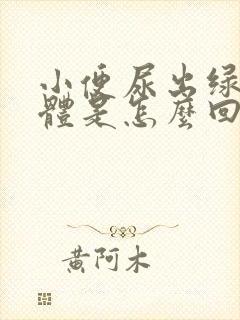 小便尿出绿
體是怎麼回
黄阿木